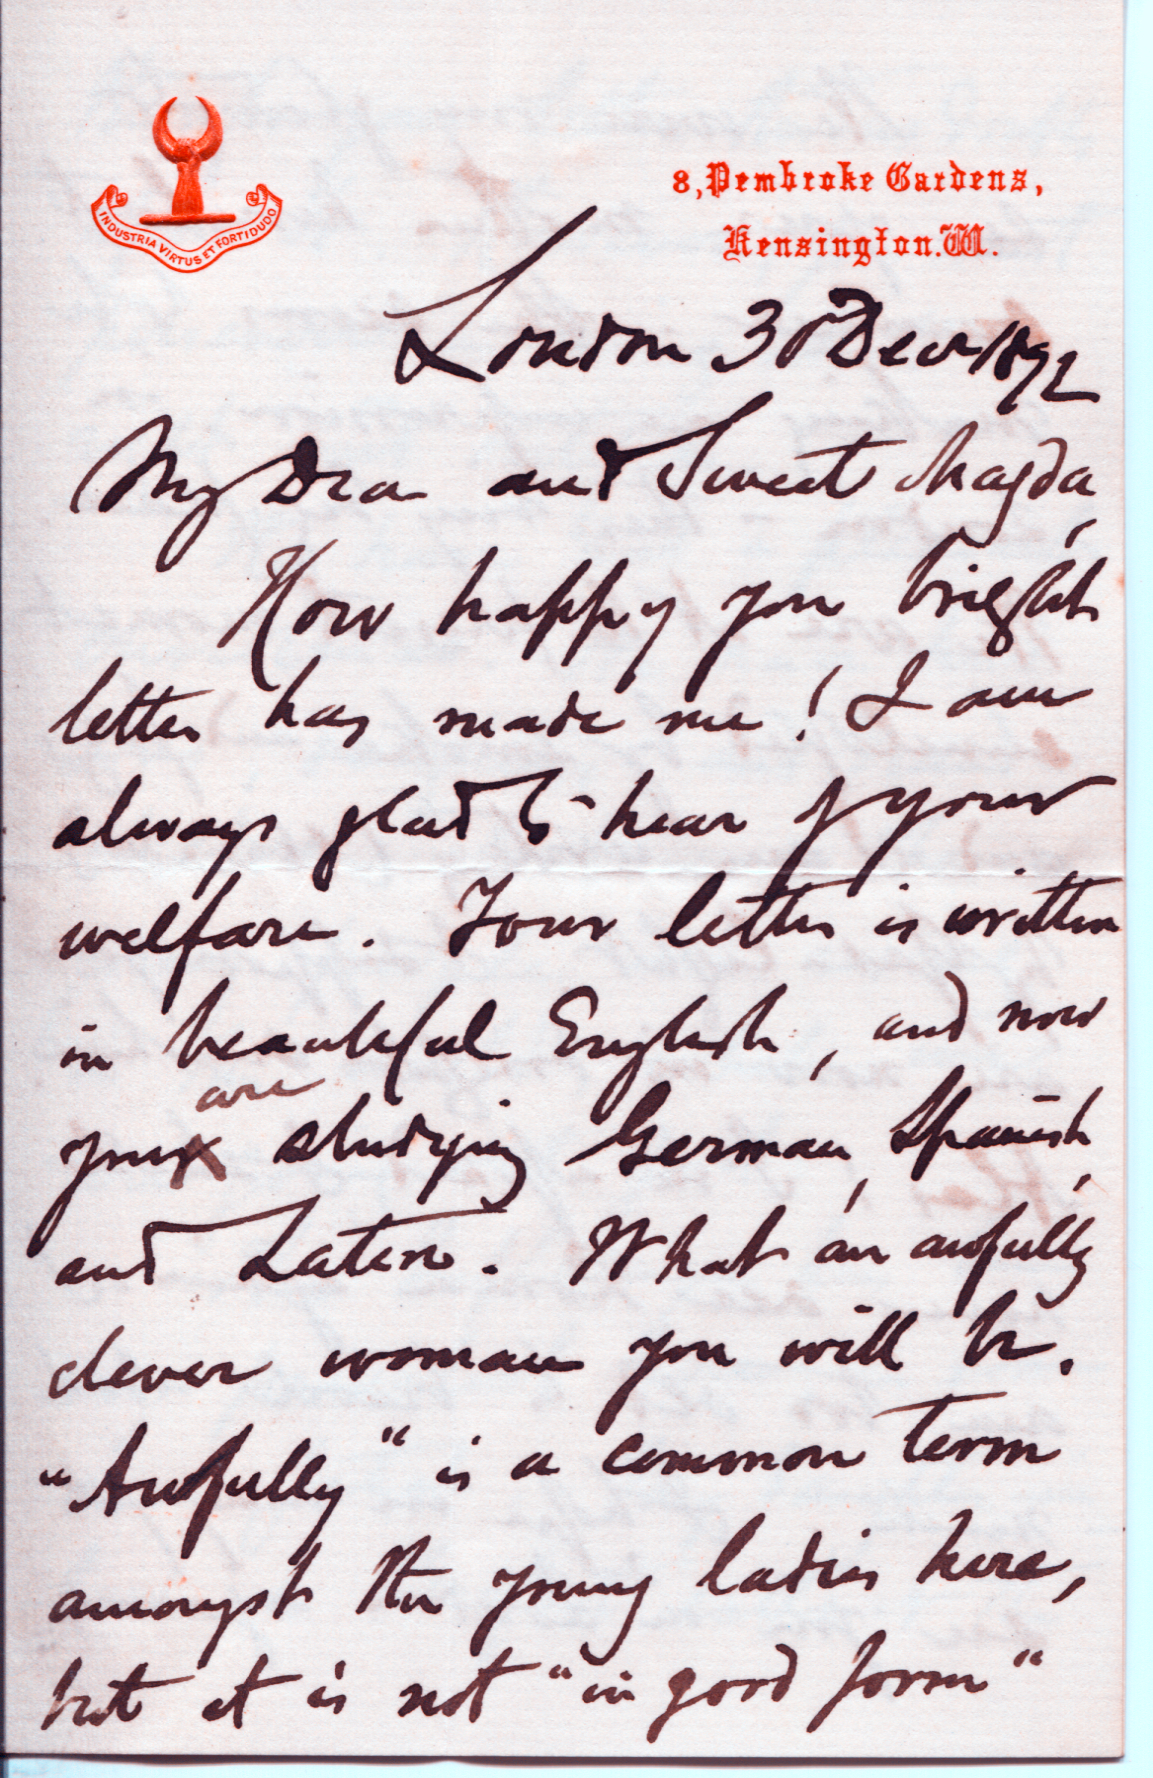 INDUSTRIA VIRTUS ET FORTIDUDO
8, Pembroke Gardens,
Kensington. W.
London 30 Decr 1892
My Dear and Sweet Magda,
How happy you bright
letter has made me! I am
always glad to hear of your
welfare. Your letter is written
in beautiful English, and now
are
you studying German, Spanish,
and Latin. What an awfully
clever woman you will be.
"Awfully" is a common term
amongst the young ladies here,
but it is not "in good form"